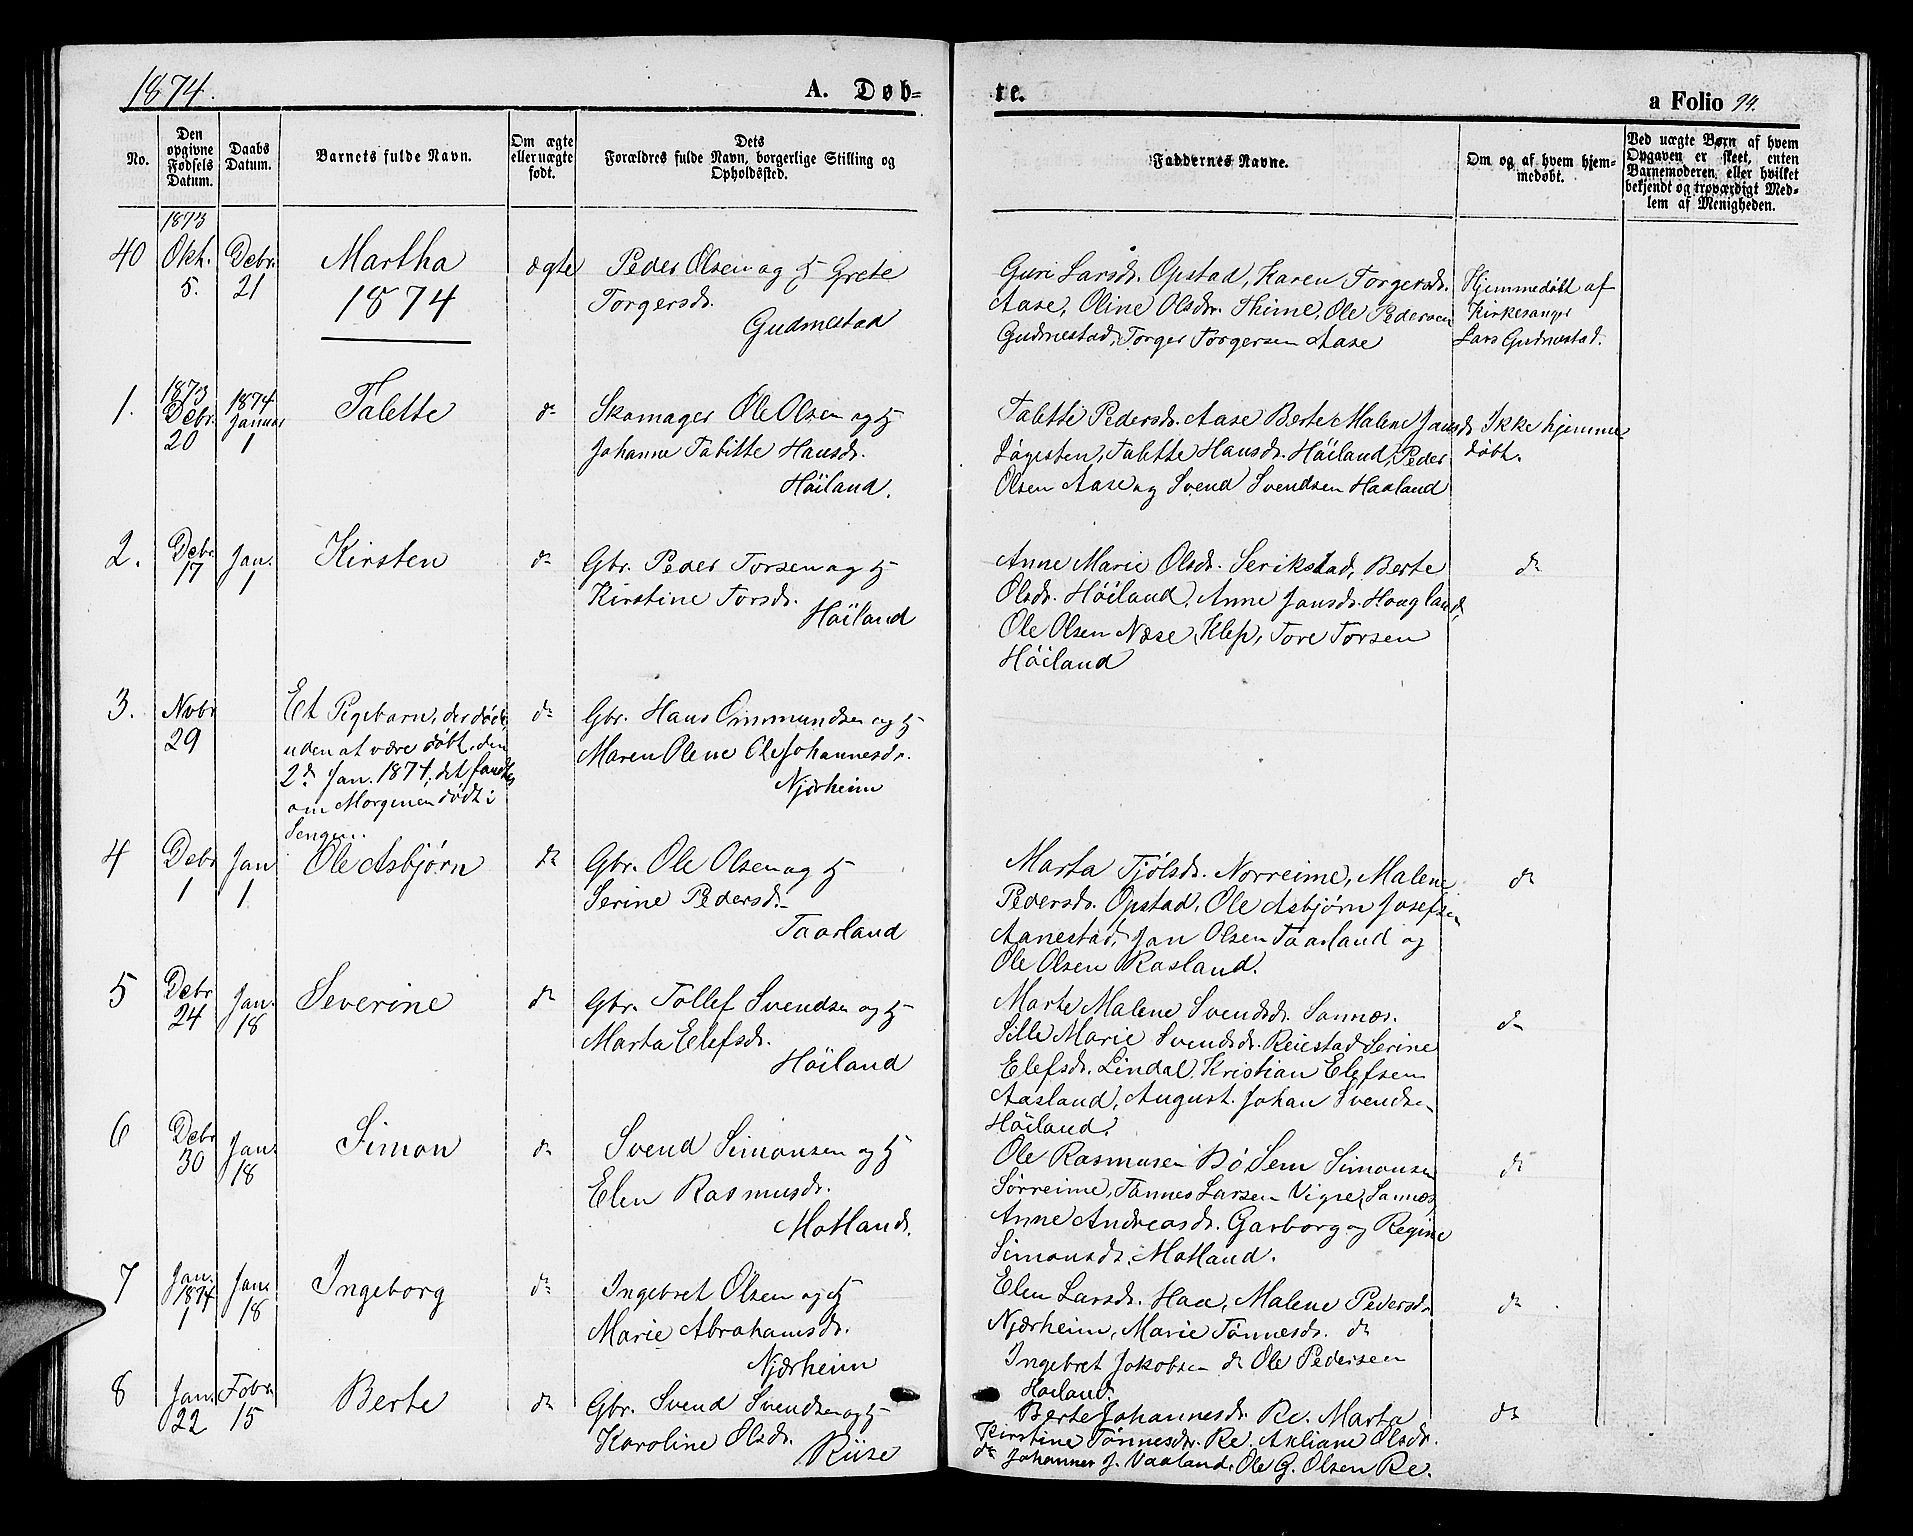 1874.
A. Døb-
te.
a Folio 94.
No.
Den opgivne Fødsels Datum.
Daabs Datum.
Barnets fulde Navn.
Om ægte eller uægte født.
Dets Forældres fulde Navn, borgerlige Stilling og Opholdssted.
Faddernes Navne.
Om og af hvem hjem-
medøbt.
Ved uægte Børn af hvem
Opgaven er skeet, enten
Barnemoderen, eller hvilket
bekjendt og troværdigt Med-
lem af Menigheden.
1873
40 Okt. 5. Debr. 21 Martha ægte Peder Olsen og H. Grete
Torgersdr.
Gudmestad
1874
Guri Larsdr. Opstad, Karen Torgersdr.
Aase, Oline Olsdr. Thime, Ole Pedersen
Gudmestad, Torger Torgersen Aase
Hjemmedøbt af
Kirkesanger
Lars Gudmestad.
1. 1873 Debr. 20 1874 Januar 1 Talette do Skomager Ole Olsen og H.
Johanne Tabitte Hansdr.
Høiland.
Talette Pedersdr. Aase Berte Malene Jansdr
Løgesten, Talette Hansdr. Høiland, Peder
Olsen Aase og Svend Svendsen Haaland
Ikke hjemme
døbt.
2. Debr. 17 Jan. 1 Kirsten do Gbr. Peder Torsen og H.
Kirstine Torsdr.
Høiland
Anne Marie Olsdr. Serikstad, Berte
Olsdr. Høiland, Anne Jansdr. Hougland,
Ole Olsen Næse, Klep, Tore Torsen
Høiland
do
3. Nobr 29 Et Pigebarn, der døde
uden at være døbt, den
2den Jan. 1874; det fandtes
om Morgenen dødt i
Sengen.
do Gbr. Hans Ommundsen og H.
Maren Olene Ole Johannesdr.
Njærheim
4 Debr 1 Jan 1. Ole Asbjørn do Gbr. Ole Olsen og H.
Serine Pedersdr.
Taarland
Marta Tjølsdr. Norreime, Malene
Pedersdr. Opstad, Ole Asbjørn Josefsen
Aanestad, Jan Olsen Taarland og
Ole Olsen Rosland.
do
5 Debr 24 Jan. 18 Severine do Gbr. Tollef Svendsen og H.
Marta Elefsdr.
Høiland
Marte Malene Svendsdr. Sannæs.
Sille Marie Svendsdr. Reiestad Serine
Elefsdr. Lindal, Kristian Elefsen
Aasland, August Johan Svendsen
Høiland.
do
6 Debr 30 Jan. 18 Simon do Svend Simonsen og H.
Elen Rasmusdr.
Motland.
Ole Rasmusen Bø Sem Simonsen
Sørreime, Tønnes Larsen Vigre, Sannæs,
Anne Andreasdr. Garborg og Regine
Simonsdr. Motland.
do
7 Jan. 1874 1 Jan. 18 Ingeborg do Ingebret Olsen og H.
Marie Abrahamsdr.
Njærheim
Elen Larsdr. Haa, Malene Pedersdr.
Njærheim, Marie Tønnesdr. do
Ingebret Jokobsen do Ole Pedersen
Høiland.
do
8 Jan. 22 Febr. 15 Berte do Gbr. Svend Svendsen og H.
Karoline Olsdr.
Riise
Berte Johannesdr. Re. Marta
Kirstine Tønnesdtr. Re. Akliane Olsdr.
do Johannes J. Vaaland, Ole G. Olsen Re.
do